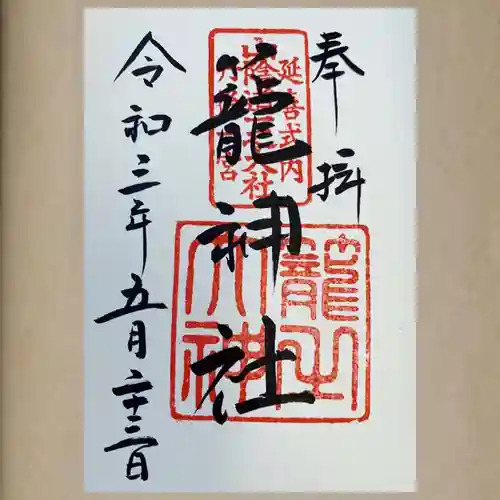 奉拝
延喜式内
籠神社
籠之大神
令和三年五月二十三日